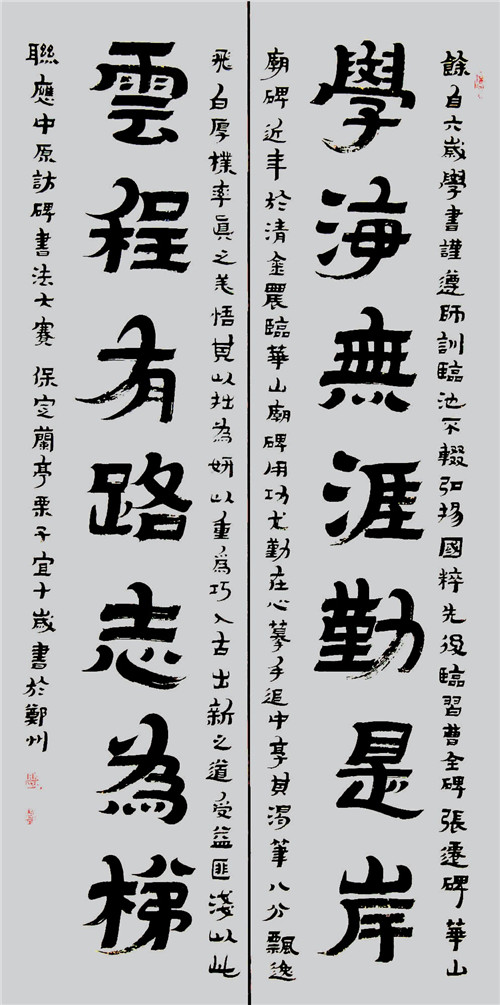 餘自六歲學書謹遵師訓臨池不輟弘揚國粹先後臨習曹全碑張遷碑華山
學海無涯勤是岸
廟碑近年於清金農臨華山廟碑用功尤勤在心摹手追中享其渴筆八分飄逸
飛白厚樸率真之美悟其以拙為妍以重為巧入古出新之道受益匪淺以此
雲程有路志為梯
聯應中原訪碑書法大賽 保定蘭亭栗子宜十歲書於鄭州